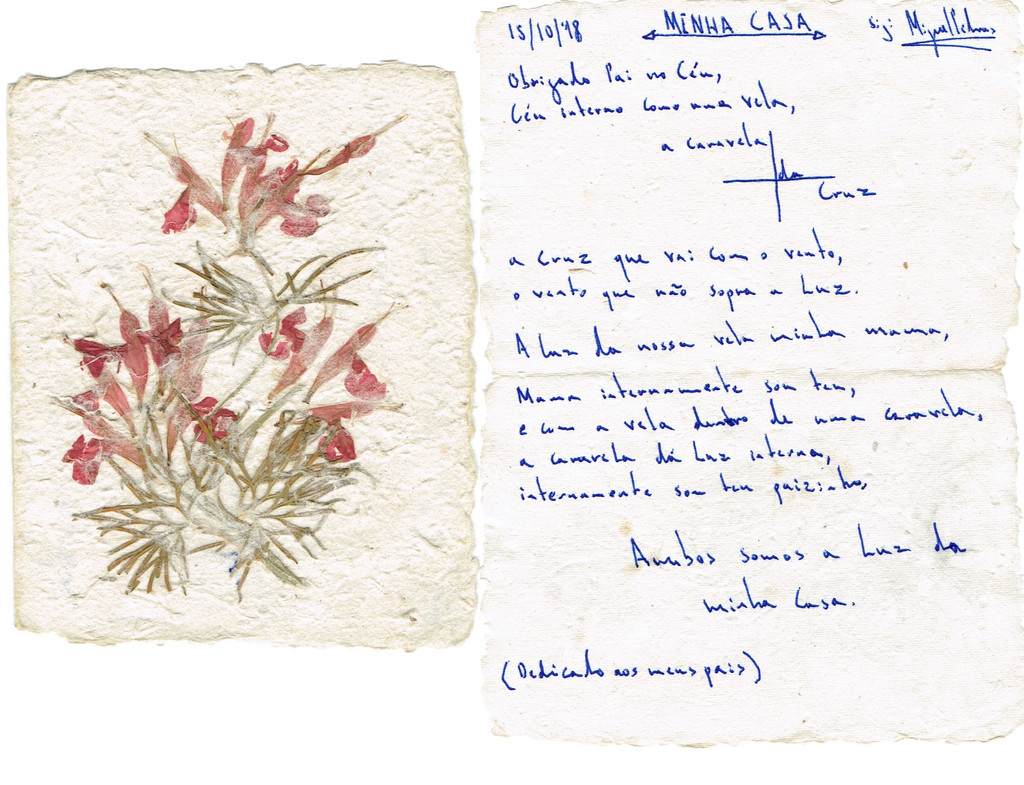 15/10/'18 MINHA CASA sig: Miguel
Obrigado Pai no Céu,
Céu interno como uma vela,
a caravela
da
Cruz
a Cruz que vai com o vento,
o vento que não sopra a Luz.
A Luz da nossa vela minha mama,
Mama internamente sou teu,
e com a vela dentro de uma caravela,
a caravela dá Luz interna,
internamente sou teu paizinho,
Ambos somos a Luz da
minha Casa.
(Dedicado aos meus pais)